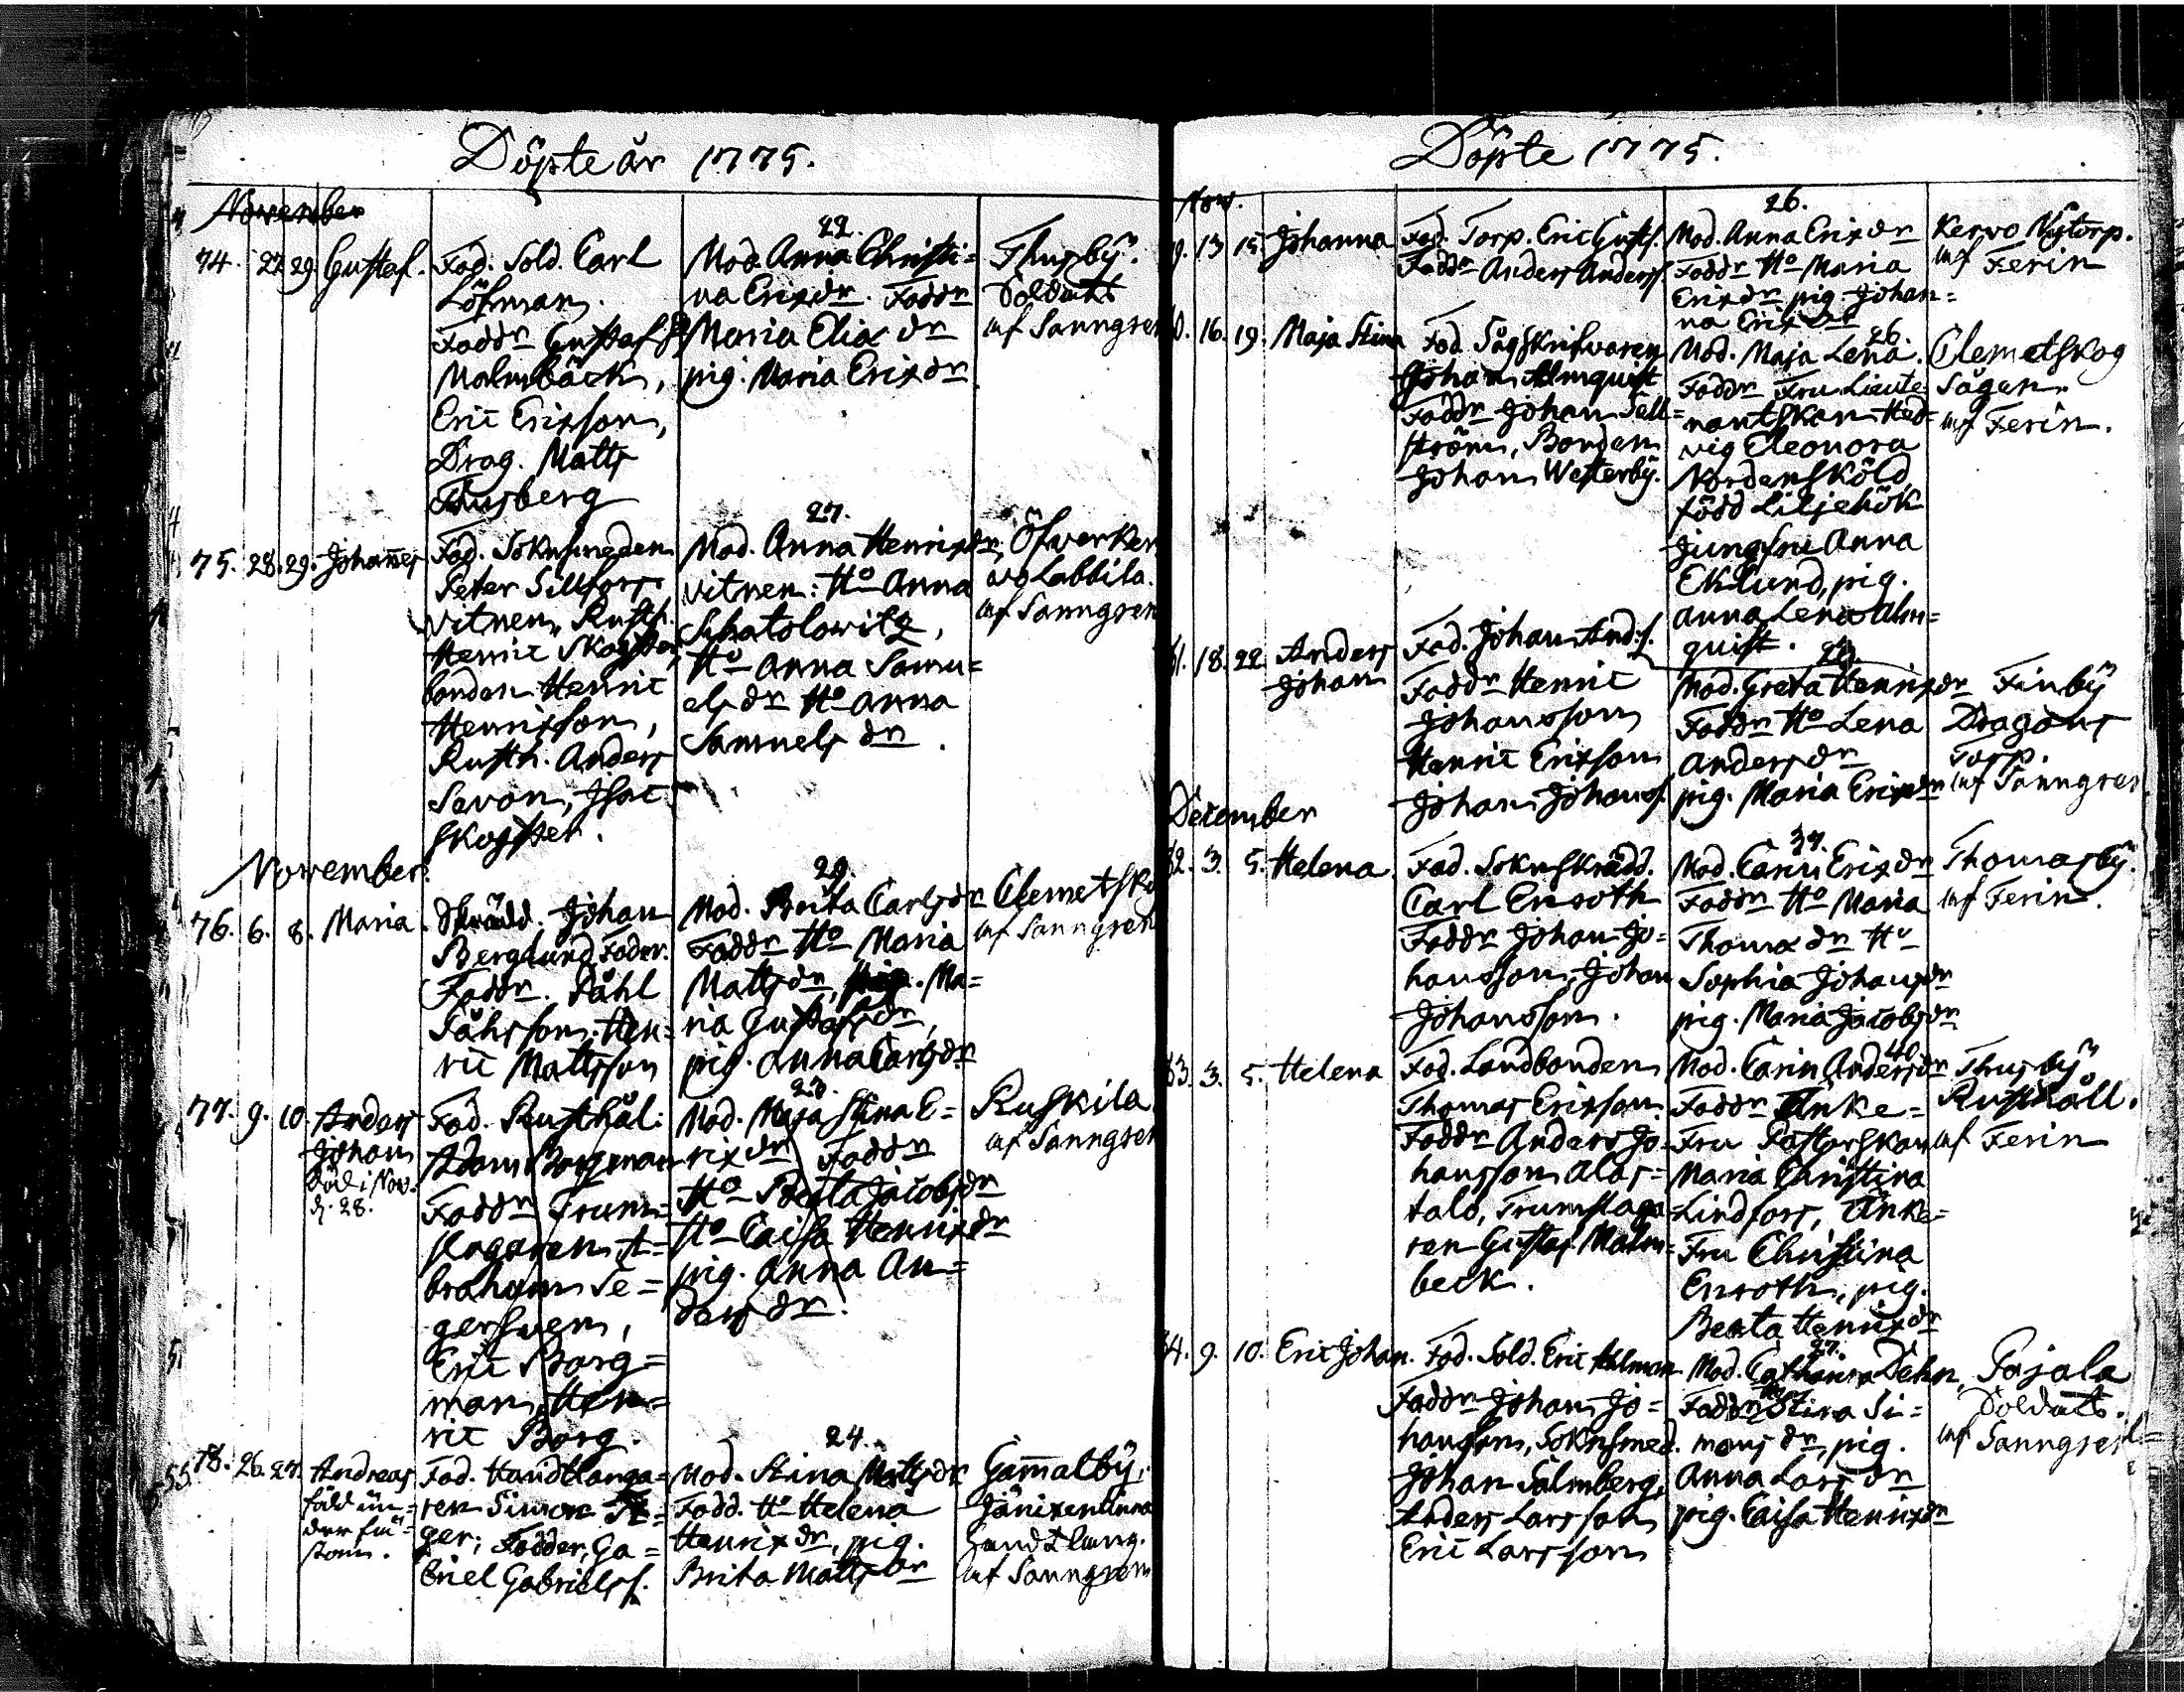 Döpte år 1775.
November
74. 27. 29. Gustaf.
Fad. Sold. Carl
Löfman.
Faddr Gustaf
Malmbäck,
Eric Erixson,
Drag. Matts
Thusberg
22.
Mod. Anna Christi=
na Erixdr. Faddr
Maria Eliæ dr
pig. Maria Erixdr
Thusbÿ.
Soldats
inf Sanngren
75. 28. 29. Johannes
Fad. Soknsmeden
Peter Sillfors
Vitnen, Rusth.
Henric Skogster,
bonden Henric
Henrixson,
Rusth. Anders
Savon, Isac
Skogster.
27.
Mod. Anna Henrixdr
vitnen: Ho Anna
Schatolowitz,
Ho Anna Samu=
els dr Ho Anna
Samuels dr.
Öfverker
vo Labbila.
inf Sanngren
November.
76. 6. 8. Maria.
Skrädd. Johan
Berglund Fader.
Faddr. Påhl
Påhlsson, Hen=
ric Mattsson
29.
Mod. Brita Carlsdr
Faddr Ho Maria
Mattsdr, pig. Ma=
ria Gustafsdr,
pig. Anna Carlsdr
Clemetsko
inf Sanngren
77. 9. 10. Anders
Johan
död i Nov.
d. 28.
Fad. Rusthål:
Adam Borgman
Faddr Trum=
slagaren A=
braham Se=
gersven,
Eric Borg=
man, Hen=
ric Borg.
23.
Mod. Maja Stina E=
rixdr Faddr
Ho Beata Jacobsdr
Ho Caisa Henrixdr
pig. Anna An=
dersdr.
Ruskila
inf Sanngren
78. 26. 27. Andreas
född un=
der
Fad. Handtlanga=
ren Simon
ger; Fadder, Ga=
briel Gabrielss.
24.
Mod. Stina Mattsdr
Fadd. Ho Helena
Henrixdr, pig.
Brita Mattsdr
Gamalbÿ,
Handtlang.
inf Sanngren
Döpte 1775.
Nov.
9. 13 15. Johanna
Fad. Torp. Eric Gustfs.
Faddr Anders Anderss.
26.
Mod. Anna Erixdr
Faddr Ho Maria
Erixdr pig. Johan=
na Erixdr
Kervo Nÿtorp.
inf Ferin
0. 16. 19. Maja Stina
Fad. Sågskrifvaren
Johan Almquist
Faddr Johan Sell=
ström, Bonden
Johan Westerbÿ.
26.
Mod. Maja Lena.
Faddr Fru Lieute=
nantskan Hed=
vig Eleonora
Nordensköld,
född Liljehök
Jungfru Anna
Eklund, pig.
Anna Lena Alm=
quist.
Clemetskog
Sågen.
inf Ferin.
1. 18. 22. Anders
Johan
Fad. Johan Ands s.
Faddr Henric
Johansson
Henric Erixson
Johan Johanss.
23.
Mod. Greta Henrixdr
Faddr Ho Lena
Andersdr
pig. Maria Erixdr
Finbÿ
Dragons
Torp.
inf Sanngren
December
82. 3. 5. Helena
Fad. Soknskrädd.
Carl Enroth
Faddr Johan Jo=
hansson, Johan
Johansson.
37.
Mod. Carin Erixdr
Faddr Ho Maria
Thomædr Ho
Sophia Johansdr
pig. Maria Jacobsdr
Thomasbÿ.
inf Ferin.
83. 3. 5. Helena
Fad. Landbonden
Thomas Erixson.
Faddr Anders Jo=
hansson Alas=
talo, Trumslaga=
ren Gustaf Malm=
beck.
40.
Mod. Carin Andersdr
Faddr Enke=
Fru Pastorskan
Maria Christina
Lindfors, Enke=
Fru Christina
Enroth, pig.
Beata Henrixdr
Thusbÿ
Rusthåll.
inf Ferin
84. 9. 10. Eric Johan.
Fad. Sold. Eric Ahlman
Faddr Johan Jo=
hanson, Soknsmed.
Johan Palmberg,
Anders Larsson
Eric Larsson
27.
Mod. Catharina Dehn
Faddr Ho Stina Si=
monsdr, pig.
Anna Larsdr
pig. Caisa Henrixdr
Pajala
Soldats.
inf Sanngren